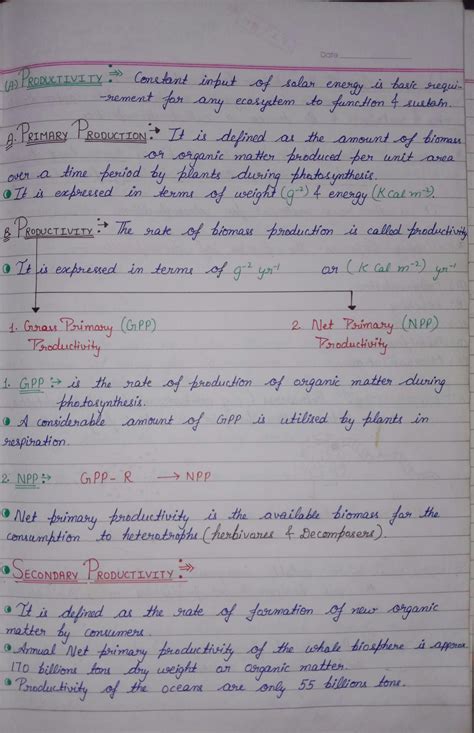 Date
(A) PRODUCTIVITY :⇒ Constant input of solar energy is basic requi-
-rement for any ecosystem to function & sustain.
A. PRIMARY PRODUCTION :→ It is defined as the amount of biomass
or organic matter produced per unit area
over a time period by plants during photosynthesis.
It is expressed in terms of weight (g⁻²) & energy (K Cal m⁻²).
B. PRODUCTIVITY :→ The rate of biomass production is called productivity
It is expressed in terms of g⁻² yr⁻¹ or (K Cal m⁻²) yr⁻¹
1. Gross Primary (GPP) 2. Net Primary (NPP)
Productivity Productivity
1. GPP :→ is the rate of production of organic matter during
photosynthesis.
A considerable amount of GPP is utilised by plants in
respiration.
2. NPP :→ GPP - R → NPP
Net primary productivity is the available biomass for the
consumption to heterotrophs (herbivores & Decomposers).
SECONDARY PRODUCTIVITY :⇒
It is defined as the rate of formation of new organic
matter by consumers.
Annual Net primary productivity of the whole biosphere is approx
170 billions tons dry weight or organic matter.
Productivity of the oceans are only 55 billions tons.